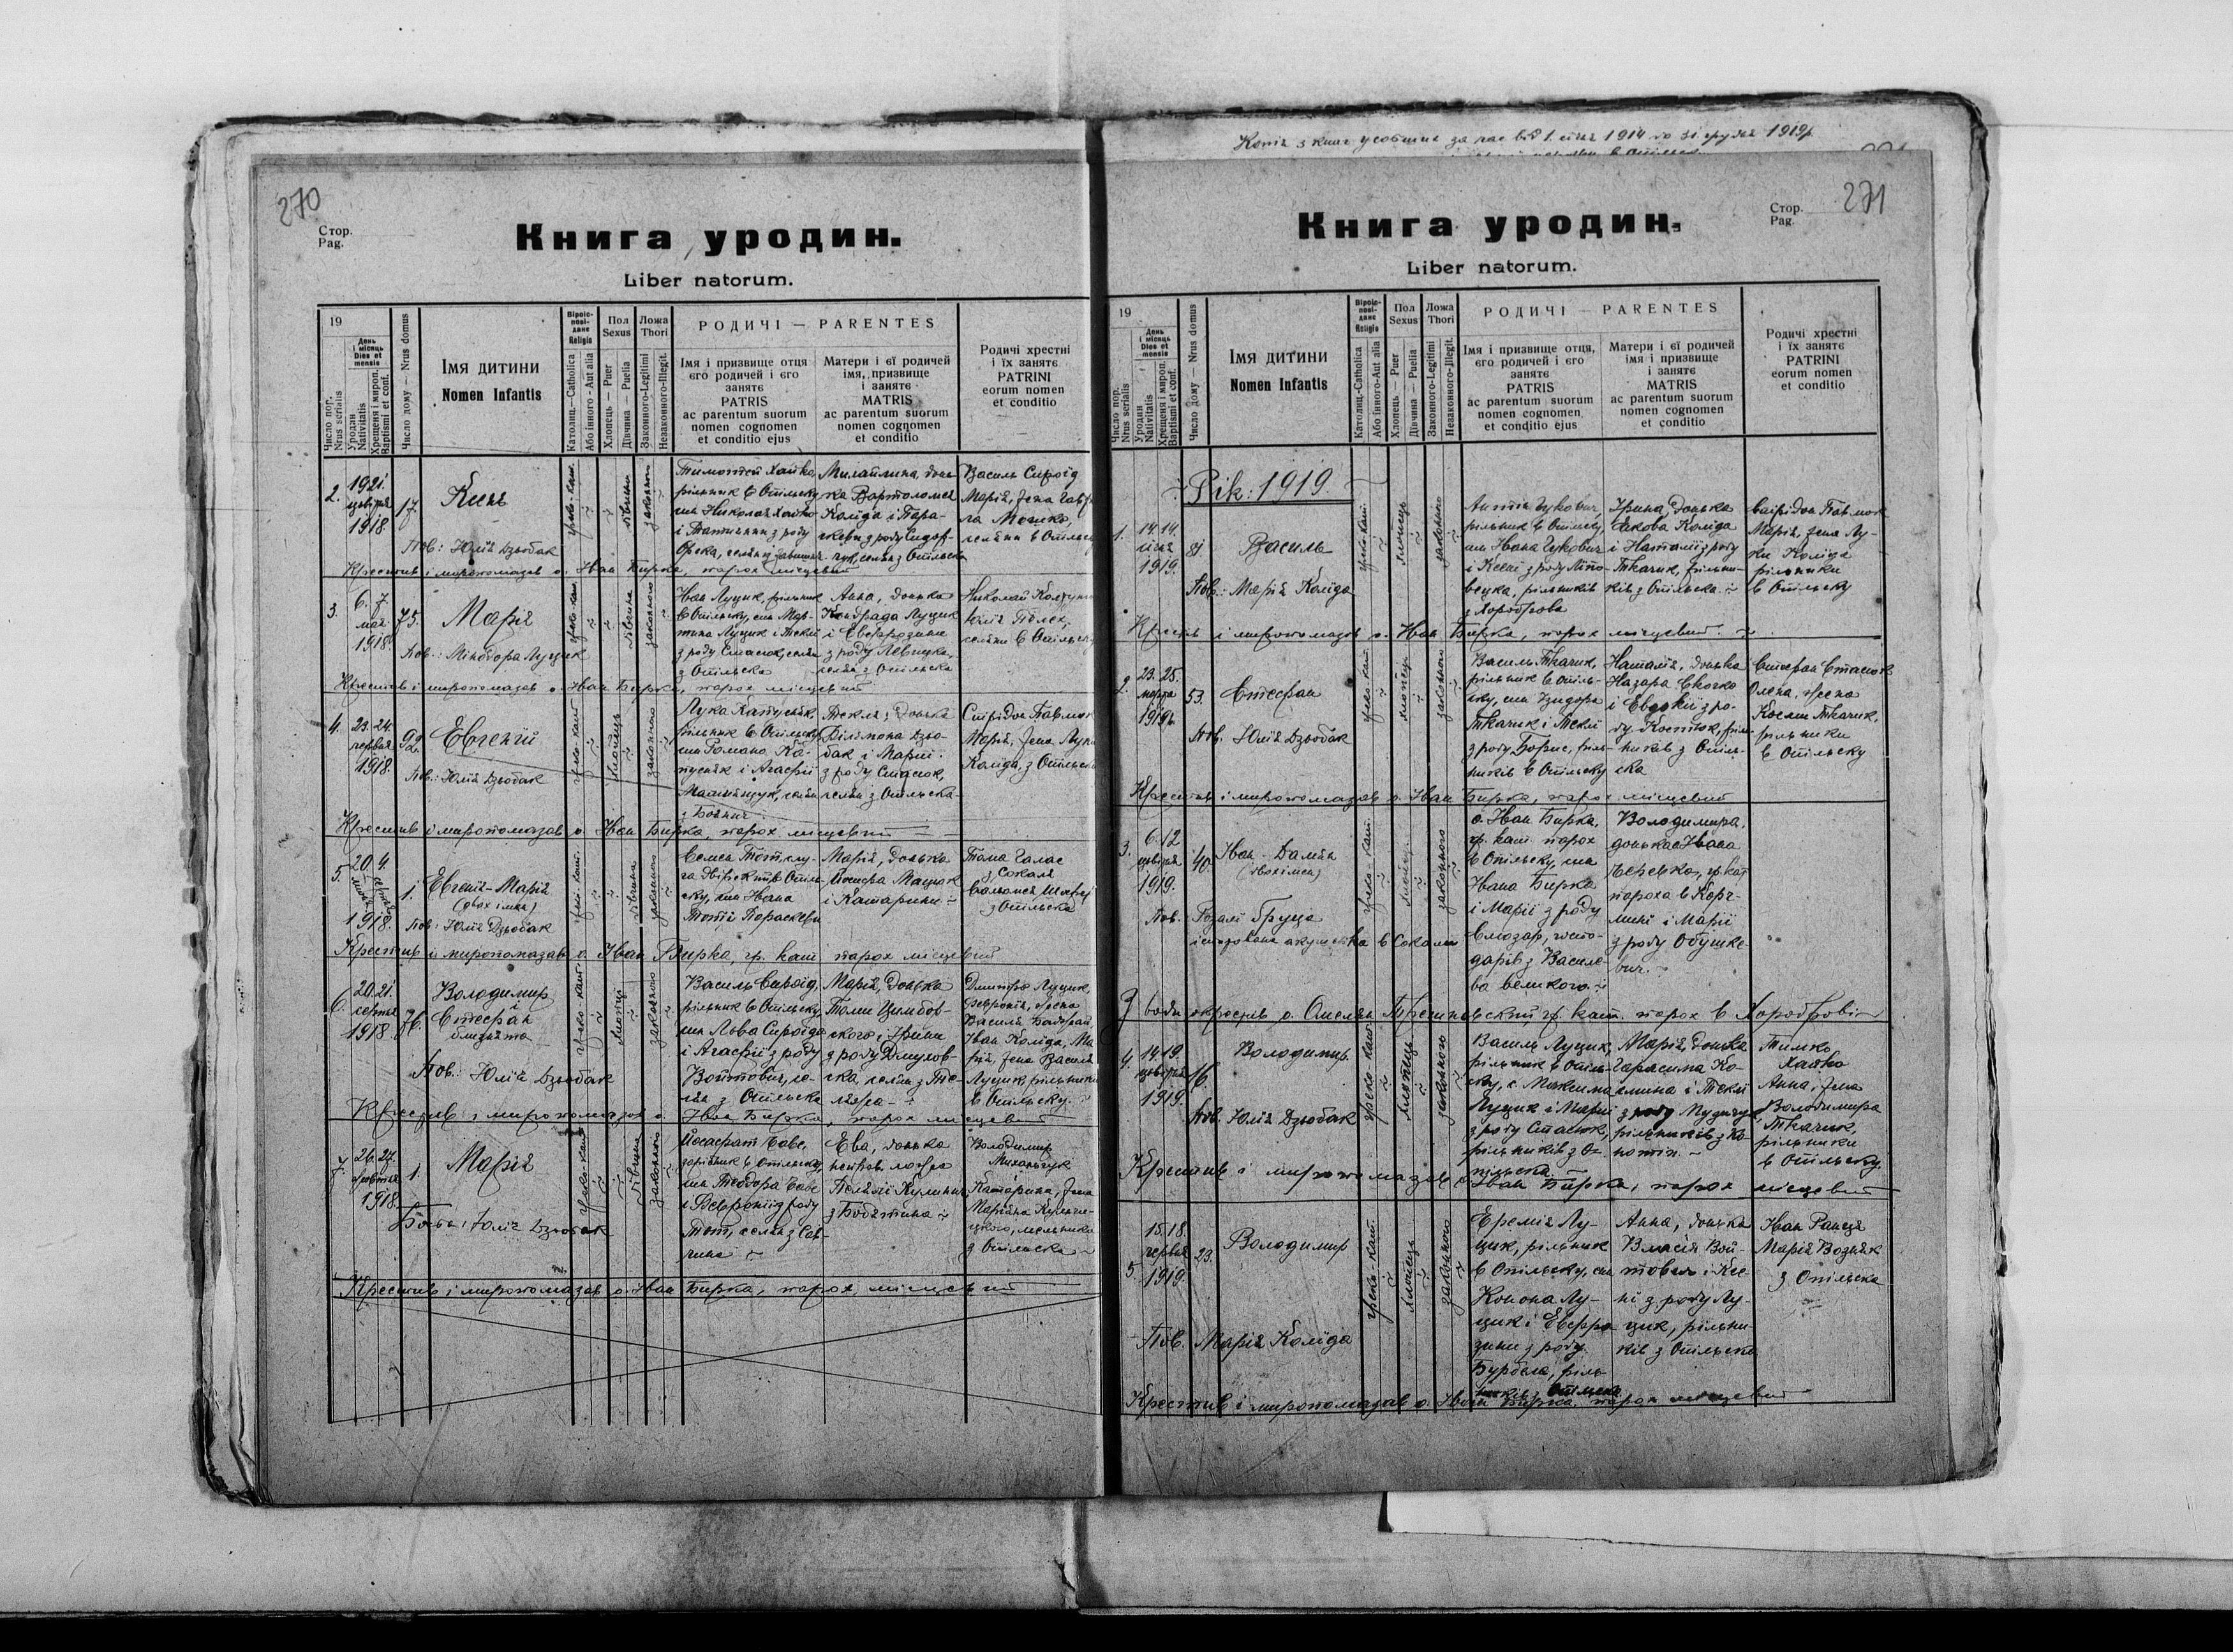 Копія з книг усопших за час від 1. січня 1914 до 31. грудня 1919 р.
270
Стор.
Pag.
Книга уродин.
Liber natorum.
19
Число пор.
Nrus serialis
День
і місяць
Dies et
mensis
Уродин
Nativitatis
Хрещеня і миропом.
Baptismi et conf.
Число дому — Nrus domus
Імя дитини
Nomen Infantis
Віроіс-
пові-
данє
Religio
Католиц.—Catholica
Або інного-Aut alia
Пол
Sexus
Хлопець — Puer
Дівчина — Puella
Ложа
Thori
Законного-Legitimi
Незаконного-Illegit.
РОДИЧІ — PARENTES
Імя і призвище отця
єго родичей і єго
занятє
PATRIS
ac parentum suorum
nomen cognomen
et conditio ejus
Матери і єї родичей
імя, призвище
і занятє
MATRIS
ac parentum suorum
nomen cognomen
et conditio
Родичі хрестні
і їх занятє
PATRINI
eorum nomen
et conditio
2.
19 21.
цвітня
1918
17.
Ксеня
Пов: Юлія Дзьобак
греко-кат.
дівчина
законного
Тимотей Хайко
рільник в Опільску
син Николая Хайко
і Татияни з роду
Михайлина, донь-
ка Вартоломея
Коліда і Пара-
скеви з роду Сидор-
чук, селян з Опільска
Василь Сироїд
Марія, жена Гав-
селяни в Опільс
Крестив і миропомазав о. Іван Бирка, парох місцевий
3.
6. 7
мая
1918.
75.
Марія
Пов.: Мінодора Луцик
греко-кат.
дівчина
законного
Іван Луцик, рільник
в Опільску, син Мар-
тина Луцик і Теклі
з роду Стасюк, селян
з Опільска
Анна, донька
Кондрада Луцик
і Євфрозини
з роду Левицка,
селян з Опільска
Николай Ковтун
селяни в Опільску
Крестив і миропомазав о. Іван Бирка, парох місцевий
4.
23. 24.
червня
1918.
92.
Евгеній
Пов.: Юлія Дзьобак
греко-кат.
хлопець
законного
Лука Капусняк,
рільник в Опільску
син Романа Ка-
пусняк і Агафії
Текля, донька
Филимона Дзьо-
бак і Марії
з роду Стасюк,
селян з Опільска
Спірідон Павлюк
Марія, жена Луки
Коліда, з Опільска
Крестив і миропомазав о. Іван Бирка, парох місцевий
5.
20. 4.
1918.
1.
Евгенія-Марія
(двох імен)
Пов: Юлія Дзьобак
греко-кат.
дівчина
законного
Марія, донька
Йосифа Мацюк
і Катарини
Тома Галас
з Сокаля
з Опільска
Крестив і миропомазав о. Іван Бирка, гр. кат. парох місцевий
6.
20. 21.
серпня
1918
76.
Володимир
і
Стефан
близнята
Пов: Юлія Дзьобак
греко-кат.
хлопці
законного
Василь Сироїд,
рільник в Опільску
син Льва Сироїда
і Агафії з роду
Войтович, се-
лян з Опільска
Марія, донька
Томи Цимбов-
ского і Ірини
Дмитро Луцик,
Февронія, жена
Іван Коліда, Ма-
рія, жена Василя
Луцик, рільники
в Опільску.
Крестив і миропомазав о. Іван Бирка, парох місцевий
7.
26. 27.
жовтня
1918.
1.
Марія
Бабка: Юлія Дзьобак
греко-кат.
дівчина
законного
Йосафат Сове,
зарібник в Опільску,
син Теодора Сове
і Февронії з роду
Ева, донька
неправ. ложа
Пелагії Кулинич
Володимир
Михальчук
Катарина, жена
Маріяна
з Опільска
Крестив і миропомазав о. Іван Бирка, парох місцевий
Стор.
Pag.
271
Книга уродин.
Liber natorum.
19
Число пор.
Nrus serialis
День
і місяць
Dies et
mensis
Уродин
Nativitatis
Хрещеня і миропом.
Baptismi et conf.
Число дому — Nrus domus
Імя дитини
Nomen Infantis
Віроіс-
пові-
данє
Religio
Католиц.-Catholica
Або інного-Aut alia
Пол
Sexus
Хлопець — Puer
Дівчина — Puella
Ложа
Thori
Законного-Legitimi
Незаконного-Illegit.
РОДИЧІ — PARENTES
Імя і призвище отця,
єго родичей і єго
занятє
PATRIS
ac parentum suorum
nomen cognomen
et conditio ejus
Матери і єї родичей
імя і призвище
і занятє
MATRIS
ac parentum suorum
nomen cognomen
et conditio
Родичі хрестні
і їх занятє
PATRINI
eorum nomen
et conditio
Рік: 1919
1.
14. 14.
січня
1919.
81
Василь
Пов.: Марія Коліда
греко-кат.
хлопець
законного
рільник в Опільску,
син Івана
і Ксені з роду Літо-
вецка, рільників
з Хороброва
Ірина, донька
Якова Коліда
і Наталії з роду
Ткачик, рільни-
ків з Опільска.
Спірідон Павлюк
Марія, жена Лу-
ки Коліда
рільники
в Опільску
Крестив і миропомазав о. Іван Бирка, парох місцевий.
2.
23. 25.
марта
1919.
53.
Стефан
Пов. Юлія Дзьобак
греко-кат.
хлопець
законного
Василь Ткачик,
рільник в Опіль-
ску, син Ізидора
Ткачик і Теклі
з роду Борис, ріль-
ників в Опільску
Наталія, донька
Назара Скочко
і Евдокії з ро-
ду Костюк, ріль-
ників з Опіль-
ска
Стефан Стасюк
Олена, жена
Косми Ткачик,
рільники
в Опільску
Крестив і миропомазав о. Іван Бирка, парох місцевий
3.
6. 12
цвітня
1919.
40.
Іван-Даміян
(двох імен)
Пов. Розалія Груца
акушерка в Сокали
греко-кат.
законного
о. Іван Бирка,
гр. кат. парох
в Опільску, син
Івана Бирка
і Марії з роду
Слюзар, госпо-
дарів з Василе-
ва великого.
Володимира,
донька Івана
гр. кат.
пароха в Корч-
мині і Марії
з роду Обушке-
вич.
З води окрестив о. Омелян гр. кат. парох в Хороброві
4.
14. 19.
цвітня
1919.
16.
Володимир
Пов. Юлія Дзьобак
греко-кат.
хлопець
законного
Василь Луцик,
рільник в Опіль-
ску, с. Максима
Луцик і Марії
з роду Стасюк,
рільників з О-
пільска.
Марія, донька
Гарасима
і Теклі
з роду
рільників з Ко-
нотіп.
Тимко
Хайко
Анна, жена
Володимира
Ткачик,
рільники
в Опільску.
Крестив і миропомазав о. Іван Бирка, парох місцевий
5.
15. 18.
червня
1919.
23.
Володимир
Пов. Марія Коліда
греко-кат.
хлопець
законного
Еремія Лу-
цик, рільник
в Опільску, син
Конона Лу-
цик і Євфро-
зини з роду
Бурбела, ріль-
ників з Опільска
Анна, донька
Власія Вой-
тович і Ксе-
ні з роду Лу-
цик, рільни-
ків з Опільска
Іван Рапця
Марія Возняк
з Опільска
Крестив і миропомазав о. Іван Бирка парох місцевий